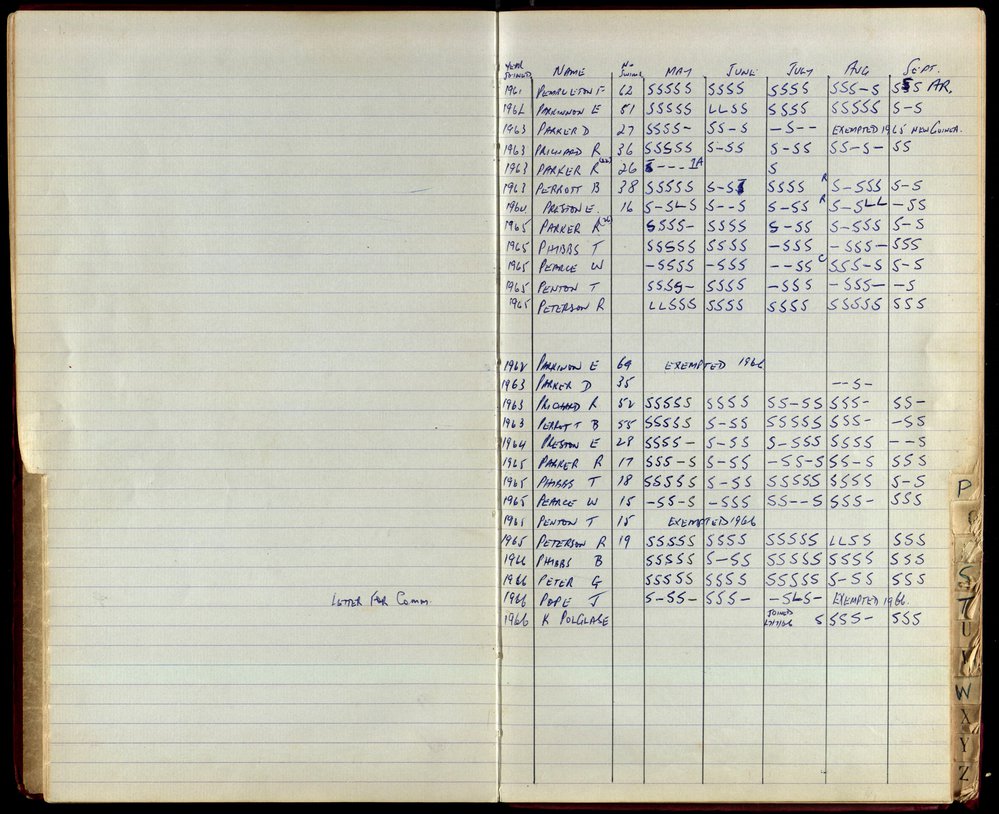 YEAR JOINED NAME No SWIMS MAY JUNE JULY AUG SEPT.
1961 PEMBLETON F 62 SSSSS SSSS SSSS SSS-S SSS AR.
1962 PARKINNON E 51 SSSSS LLSS SSSS SSSSS S-S
1963 PARKER D 27 SSSS- SS-S -S-- EXEMPTED 1965 NEW GUINEA.
1963 PRICHARD R 36 SSSSS S-SS S-SS SS-S- SS
1963 PARKER R 26 S---- IA S
1963 PERROTT B 38 SSSSS S-SI SSSS R S-SSS S-S
1964 PRESTON E. 16 S-SLS S--S S-SS R S-SLL -SS
1965 PARKER R SSSS- SSSS S-SS S-SSS S-S
1965 PHIBBS T SSSSS SSSS -SSS -SSS- SSS
1965 PEARCE W -SSSS -SSS --SS C SSS-S S-S
1965 PENTON T SSSS- SSSS -SSS -SSS- -S
1965 PETERSON R LLSSS SSSS SSSS SSSSS SSS
1962 PARKINON E 69 EXEMPTED 1966
1963 PARKER D 35 --S-
1963 PRICHARD R 52 SSSSS SSSS SS-SS SSS- SS-
1963 PERROTT B 55 SSSSS S-SS SSSSS SSS- -SS
1964 PRESTON E 28 SSSS- S-SS S-SSS SSSS --S
1965 PARKER R 17 SSS-S S-SS -SS-S SS-S SSS
1965 PHIBBS T 18 SSSSS S-SS SSSSS SSSS S-S
1965 PEARCE W 15 -SS-S -SSS SS--S SSS- SSS
1965 PENTON T 15 EXEMPTED 1966
1965 PETERSON R 19 SSSSS SSSS SSSSS LLSS SSS
1966 PHIBBS B SSSSS S-SS SSSSS SSSS SSS
1966 PETER G SSSSS SSSS SSSSS S-SS SSS
LETTER FOR COMM. 1966 POPE J S-SS- SSS- -SLS- EXEMPTED 1966.
1966 K POLGLASE JOINED S SSS- SSS
P
S
T
U
W
X
Y
Z